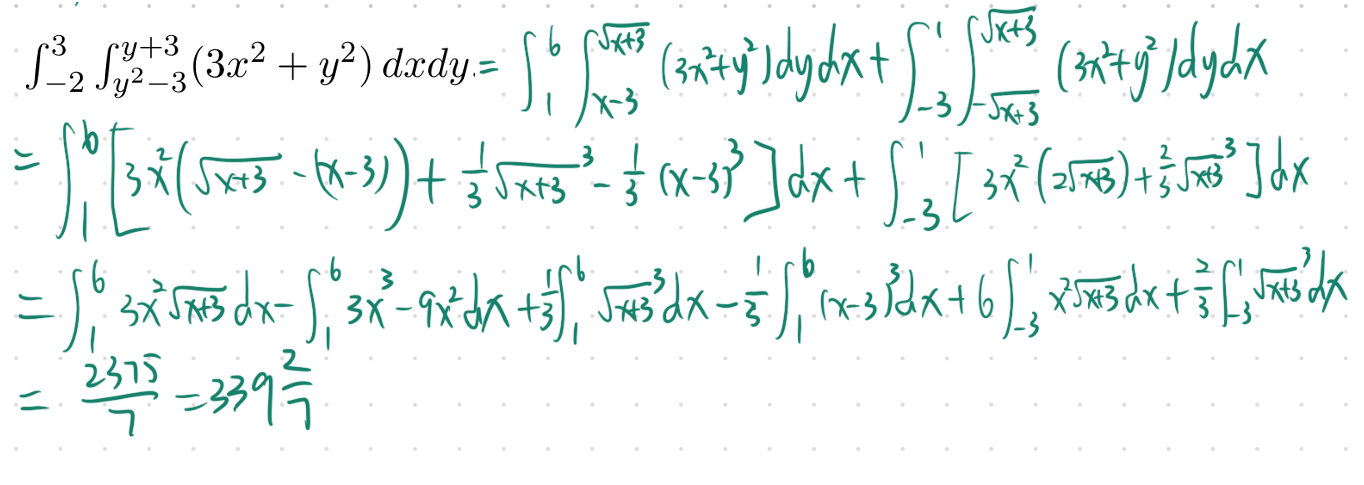 ∫_{-2}^{3} ∫_{y²-3}^{y+3} (3x² + y²) dxdy. = ∫_{1}^{6} ∫_{x-3}^{√(x+3)} (3x²+y²) dydx + ∫_{-3}^{1} ∫_{-√(x+3)}^{√(x+3)} (3x²+y²) dydx
= ∫_{1}^{6} [3x²(√(x+3) - (x-3)) + 1/3 √(x+3)³ - 1/3 (x-3)³] dx + ∫_{-3}^{1} [3x²(2√(x+3)) + 2/3 √(x+3)³] dx
= ∫_{1}^{6} 3x²√(x+3) dx - ∫_{1}^{6} 3x³ - 9x² dx + 1/3 ∫_{1}^{6} √(x+3)³ dx - 1/3 ∫_{1}^{6} (x-3)³ dx + 6 ∫_{-3}^{1} x²√(x+3) dx + 2/3 ∫_{-3}^{1} √(x+3)³ dx
= 2375/7 = 339 2/7